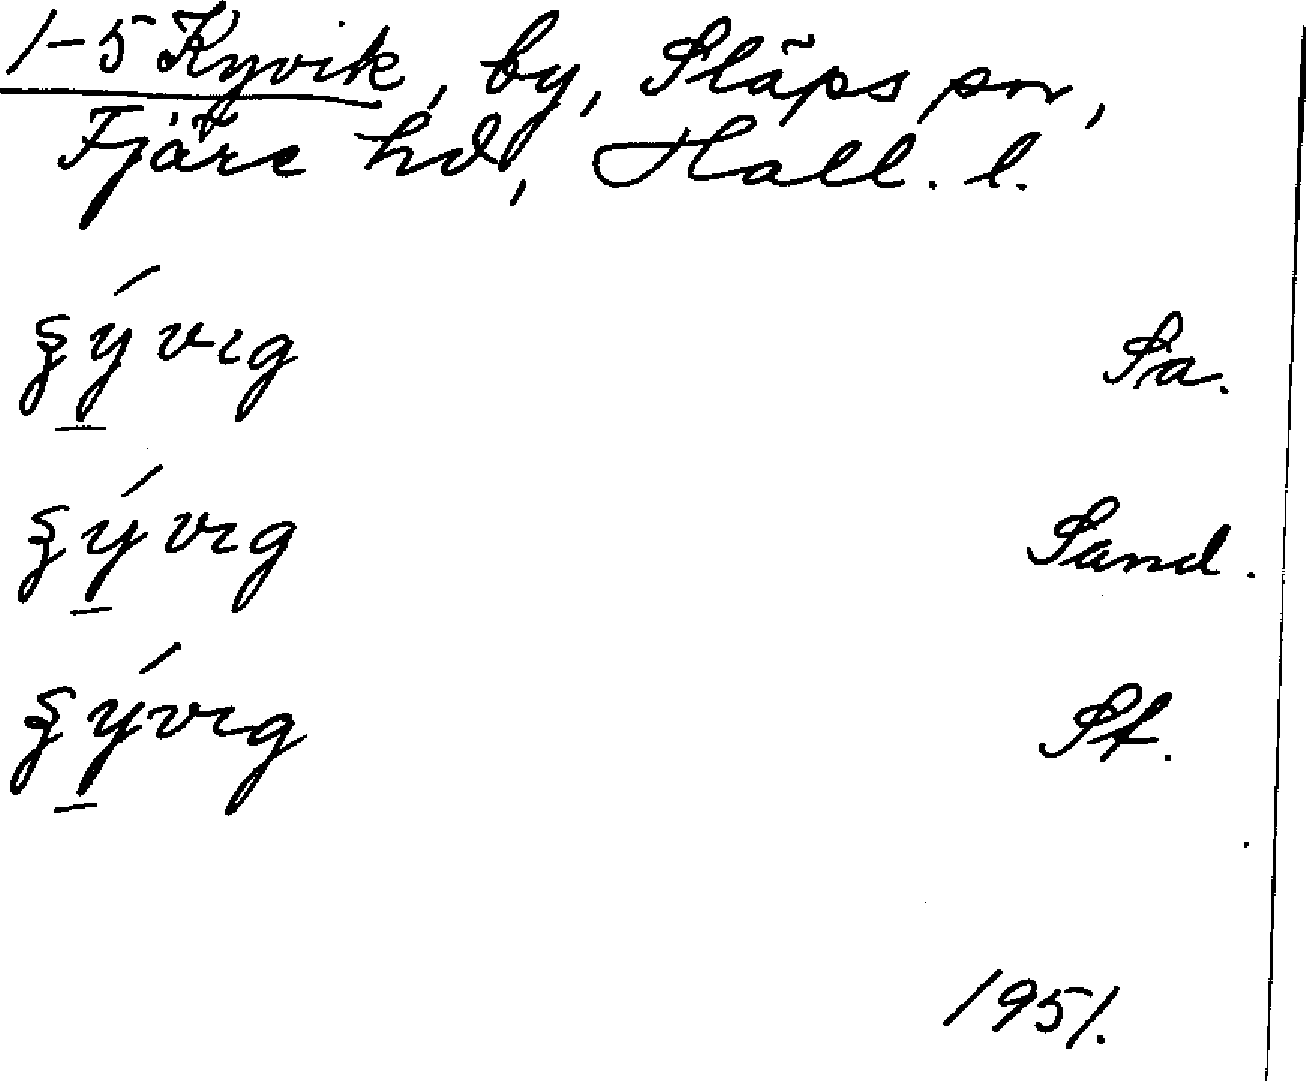 1-5 Kyvik, by, Släps sn,
Fjäre hd, Hall. l.
ȿý̲vıg Sa.
ȿý̲vıg Sand.
ȿý̲vıg St.
1951.